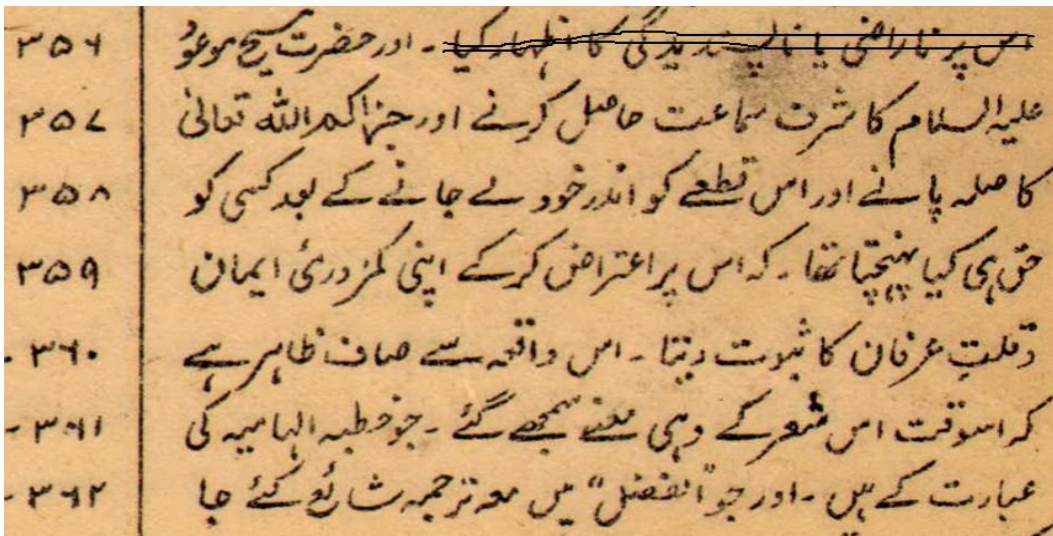 اس پر ناراضی یا ناپسندیدگی کا اظہار کیا ۔ اور حضرت مسیح موعودؑ ۳۵۶
علیہ السلام کا شرف سماعت حاصل کرنے اور جزاکم اللہ تعالیٰ ۳۵۷
کا صلہ پانے اور اس قطعے کو اندر خود لے جانے کے بعد کسی کو ۳۵۸
حق ہی کیا پہنچتا تھا ۔ کہ اس پر اعتراض کرکے اپنی کمزوریٔ ایمان ۳۵۹
وقلتِ عرفان کا ثبوت دیتا ۔ اس واقعہ سے صاف ظاہر ہے ۳۶۰
کہ اسوقت اس شعر کے وہی معنے سمجھے گئے ۔ جو خطبہ الہامیہ کی ۳۶۱
عبارت کے ہیں ۔ اور جو "الفضل" میں معہ ترجمہ شائع کئے جا ۳۶۲